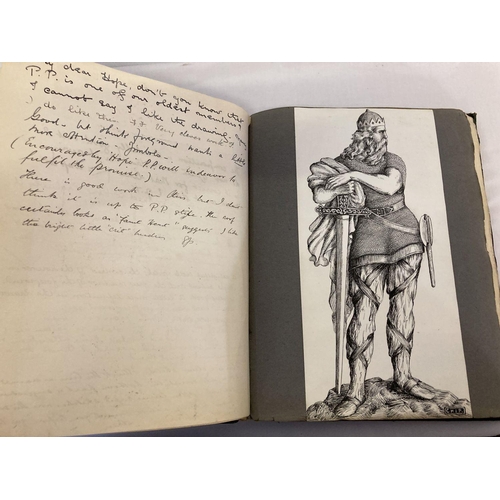 my dear Hope, don't you know that
P.P. is one of our oldest members.
I cannot say I like the drawing
I do like this it's very clever work
Good. but thinks foreground wants a little
more attention "Jombola."
(Encouraged by 'Hope' P.P. will endeavour to
fulfil the promise!)
There is good work in this, but I don't
think it is up to P.P's style. The
certainly looks as "Faint Heart" suggests. I like
the bright little "crit"